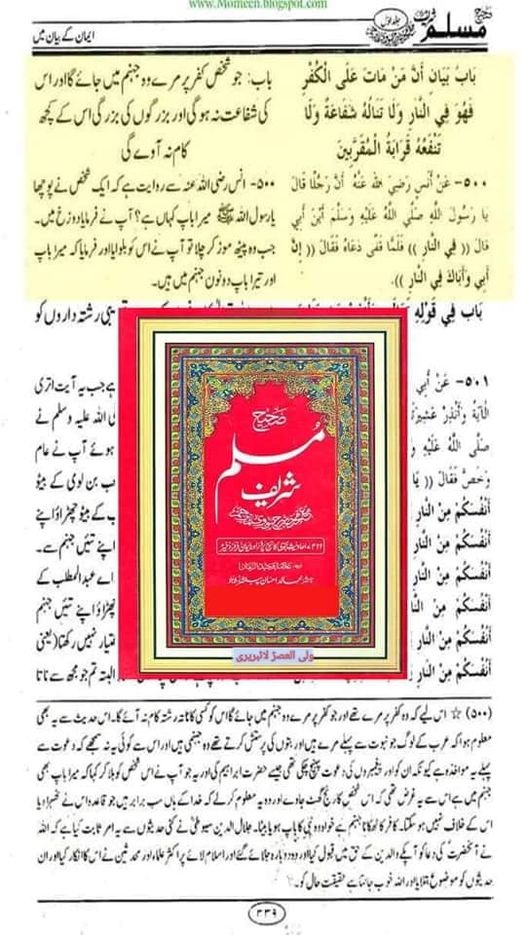 www.Momeen.blogspot.com
صحیح مسلم شریف
جلد اول
ایمان کے بیان میں
بَابُ بَيَانِ أَنَّ مَنْ مَاتَ عَلَى الْكُفْرِ
فَهُوَ فِي النَّارِ وَلَا تَنَالُهُ شَفَاعَةٌ وَلَا
تَنْفَعُهُ قَرَابَةُ الْمُقَرَّبِينَ
٥٠٠- عَنْ أَنَسٍ رَضِيَ اللَّهُ عَنْهُ أَنَّ رَجُلًا قَالَ
يَا رَسُولَ اللَّهِ صَلَّى اللَّهُ عَلَيْهِ وَسَلَّمَ أَيْنَ أَبِي
قَالَ (( فِي النَّارِ )) فَلَمَّا قَفَّى دَعَاهُ فَقَالَ (( إِنَّ
أَبِي وَأَبَاكَ فِي النَّارِ )).
باب: جو شخص کفر پر مرے وہ جہنم میں جائے گا اور اس
کی شفاعت نہ ہوگی اور بزرگوں کی بزرگی اس کے کچھ
کام نہ آوے گی
۵۰۰- انس رضی اللہ عنہ سے روایت ہے کہ ایک شخص نے پوچھا
یا رسول اللہ ﷺ میرا باپ کہاں ہے؟ آپ نے فرمایا دوزخ میں۔
جب وہ پیٹھ موڑ کر چلا تو آپ نے اس کو بلوایا اور فرمایا کہ میرا باپ
اور تیرا باپ دونوں جہنم میں ہیں۔
بَاب فِي قَوْلِهِ
یبی رشتہ داروں کو
٥٠١- عَنْ أَبِي
الْآيَةُ وَأَنْذِرْ عَشِيرَ
صَلَّى اللَّهُ عَلَيْهِ وَ
وَخَصَّ فَقَالَ (( يَا
أَنْفُسَكُمْ مِنْ النَّارِ
أَنْفُسَكُمْ مِنْ النَّارِ
أَنْفُسَكُمْ مِنْ النَّارِ
أَنْفُسَكُمْ مِنْ النَّارِ
أَنْفُسَكُمْ مِنْ النَّارِ
ہے جب یہ آیت اتری
ی اللہ علیہ وسلم نے
ہوئے آپ نے عام
ب بن لوی کے بیٹو
ب کے بیٹو چھڑاؤ اپنے
اپنے تئیں جہنم سے۔
اے عبدالمطلب کے
چھڑاؤ اپنے تئیں جہنم
ختیار نہیں رکھتا (یعنی
البتہ تم جو مجھ سے ناتا
صحیح
مسلم
شریف
ولی العصرؑ لائبریری
(۵۰۰) ☆ اس لیے کہ وہ کفر پر مرے تھے اور جو کفر پر مرے وہ جہنم میں جائے گا اس کو کسی کا ناتہ رشتہ کام نہ آئے گا۔ اس حدیث سے یہ بھی
معلوم ہوا کہ عرب کے لوگ جو نبوت سے پہلے مرے ہیں اور بتوں کی پرستش کرتے تھے وہ جہنمی ہیں اور اس سے کوئی یہ نہ سمجھے کہ دعوت سے
پہلے یہ مواخذہ ہے کیونکہ ان کو اور پیغمبروں کی دعوت پہنچ چکی تھی جیسے حضرت ابراہیم کی اور یہ جو آپ نے اس شخص کو بلا کر کہا کہ میرا باپ بھی
جہنم میں ہے اس سے یہ غرض تھی کہ اس شخص کا رنج گھٹ جاوے اور وہ یہ معلوم کر لے کہ خدا کے ہاں سب برابر ہیں جو قاعدہ اس نے ٹھہرا دیا
اس کے خلاف نہیں ہو سکتا۔ کافر کا ٹھکانا جہنم ہے خواہ وہ نبی کا باپ ہو یا بیٹا۔ جلال الدین سیوطی نے کئی حدیثوں سے یہ امر ثابت کیا ہے کہ اللہ
نے آنحضرت کی دعا کو آپکے والدین کے حق میں قبول کیا اور وہ دوبارہ جلائے گئے اور اسلام لائے پر اکثر علماء اور محدثین نے اس کا انکار کیا اور ان
حدیثوں کو موضوع بتلایا اور اللہ خوب جانتا ہے حقیقت حال کو۔
۳۳۹